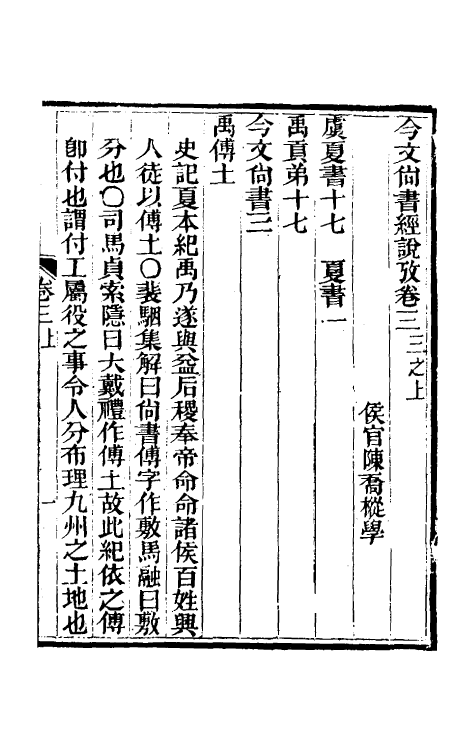 今文尚書經說攷卷三三之上
侯官陳喬樅學
虞夏書十七　夏書一
禹貢弟十七
今文尚書三
禹傅土
史記夏本紀禹乃遂與益后稷奉帝命命諸侯百姓興
人徒以傅土〇裴駰集解曰尚書傅字作敷馬融曰敷
分也〇司馬貞索隱曰大戴禮作傅土故此紀依之傅
卽付也謂付工屬役之事令人分布理九州之土地也
卷三上
一